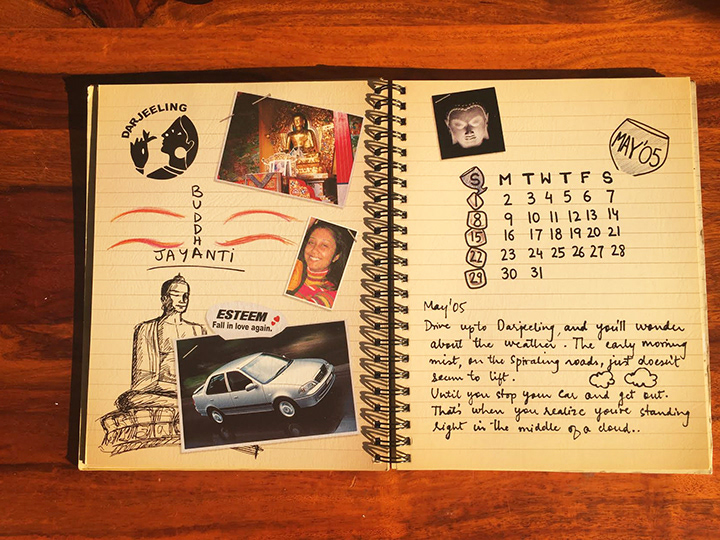 DARJEELING
BUDDHA
JAYANTI
ESTEEM
Fall in love again.
MAY'05
S M T W T F S
1 2 3 4 5 6 7
8 9 10 11 12 13 14
15 16 17 18 19 20 21
22 23 24 25 26 27 28
29 30 31
May'05
Drive upto Darjeeling, and you'll wonder
about the weather. The early morning
mist, on the spiraling roads, just doesn't
seem to lift.
Until you stop your car and get out.
That's when you realize you're standing
right in the middle of a cloud..